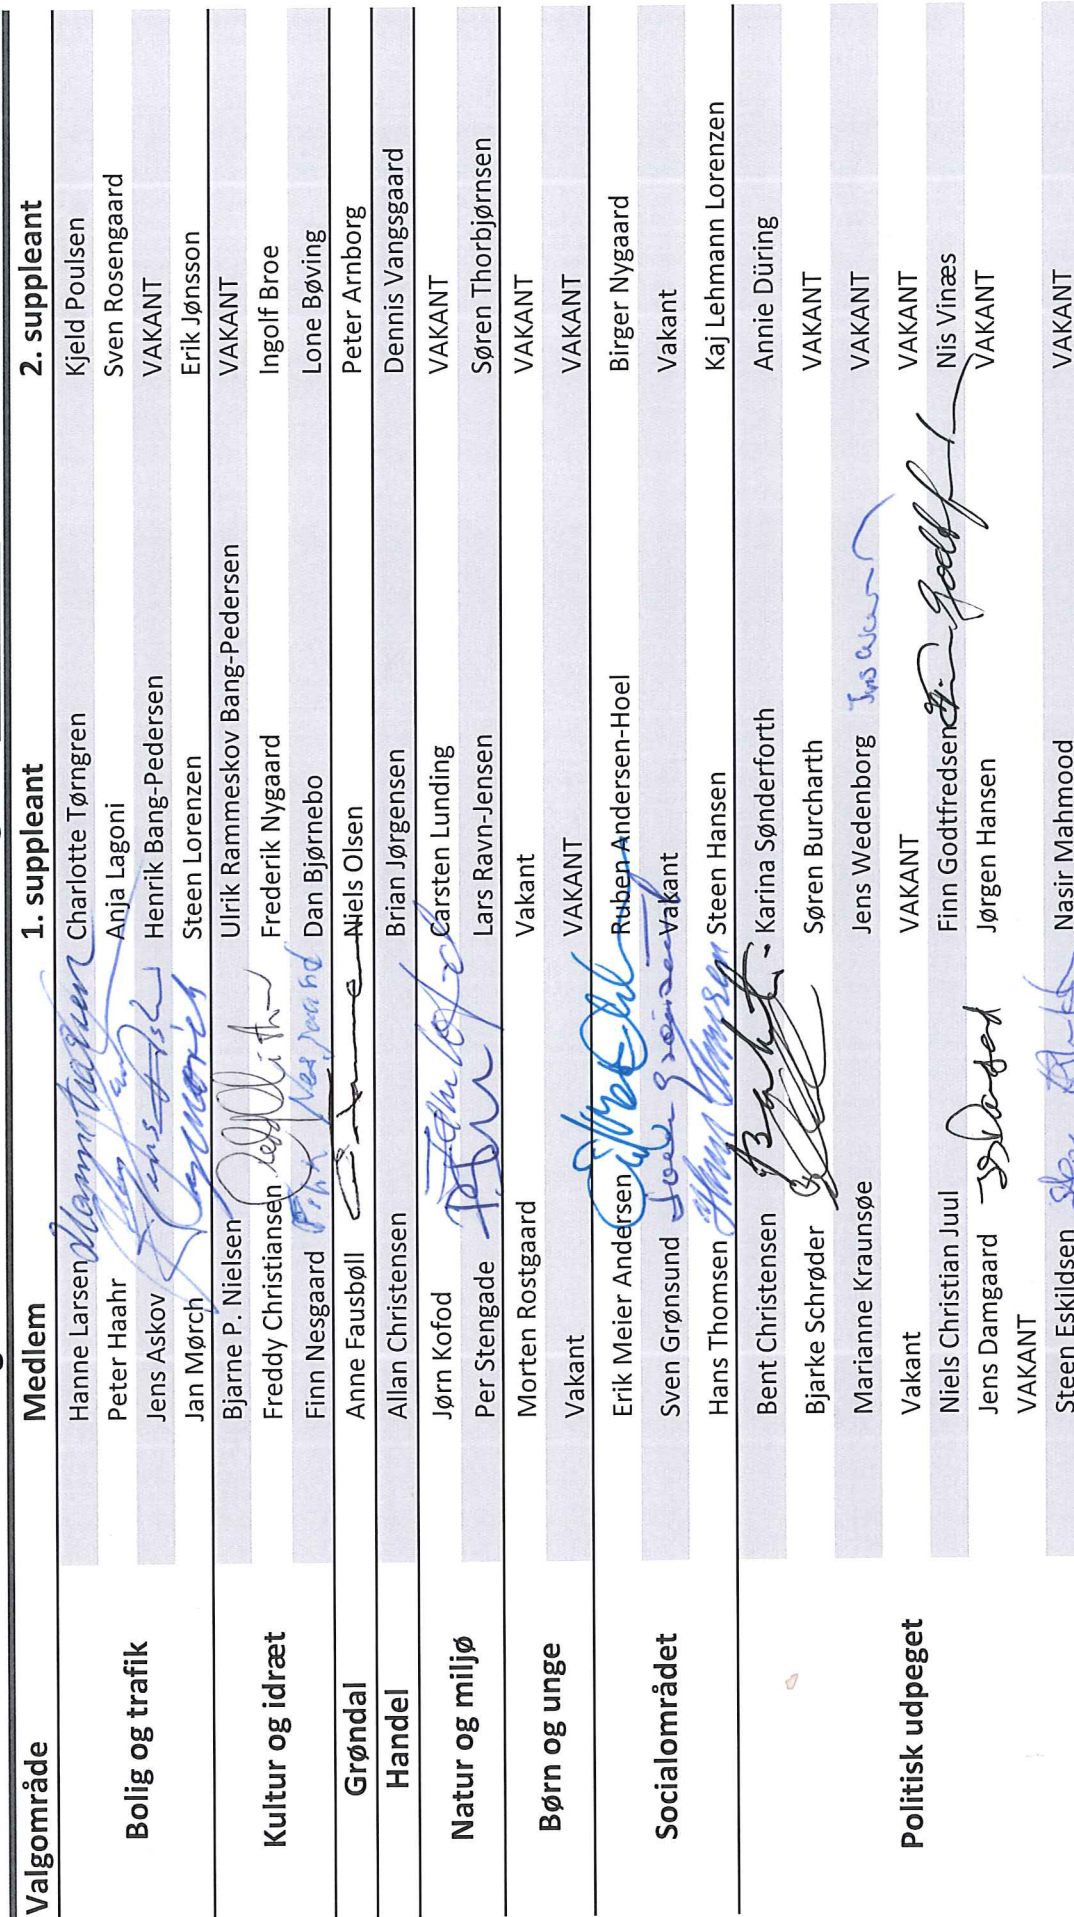 Valgområde Medlem 1. suppleant 2. suppleant
Bolig og trafik
Hanne Larsen Charlotte Tørngren Kjeld Poulsen
Peter Haahr Anja Lagoni Sven Rosengaard
Jens Askov Henrik Bang-Pedersen VAKANT
Jan Mørch Steen Lorenzen Erik Jønsson
Kultur og idræt
Bjarne P. Nielsen Ulrik Rammeskov Bang-Pedersen VAKANT
Freddy Christiansen Frederik Nygaard Ingolf Broe
Finn Nesgaard Finn Nesgaard Dan Bjørnebo Lone Bøving
Grøndal Anne Fausbøll Niels Olsen Peter Arnborg
Handel Allan Christensen Brian Jørgensen Dennis Vangsgaard
Natur og miljø
Jørn Kofod Carsten Lunding VAKANT
Per Stengade Lars Ravn-Jensen Søren Thorbjørnsen
Børn og unge
Morten Rostgaard Vakant VAKANT
Vakant VAKANT VAKANT
Socialområdet
Erik Meier Andersen Ruben Andersen-Hoel Birger Nygaard
Sven Grønsund Vakant Vakant
Hans Thomsen Steen Hansen Kaj Lehmann Lorenzen
Politisk udpeget
Bent Christensen Karina Sønderforth Annie Düring
Bjarke Schrøder Søren Burcharth VAKANT
Marianne Kraunsøe Jens Wedenborg VAKANT
Vakant VAKANT VAKANT
Niels Christian Juul Finn Godtfredsen Nis Vinæs
Jens Damgaard Jørgen Hansen VAKANT
VAKANT
Steen Eskildsen Nasir Mahmood VAKANT